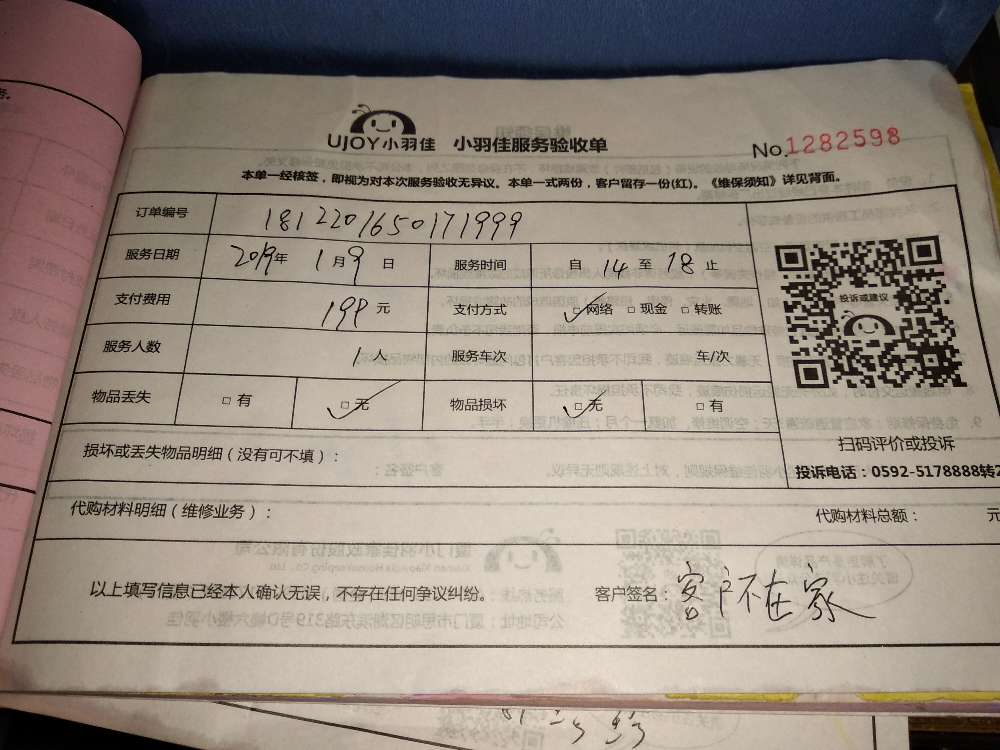 务.
UJOY小羽佳 小羽佳服务验收单
No.1282598
本单一经核签，即视为对本次服务验收无异议。本单一式两份，客户留存一份(红)。《维保须知》详见背面。
订单编号 1812201650171999
服务日期 2019年 1月9日 服务时间 自 14 至 18 止
支付费用 199 元 支付方式 □网络 □现金 □转账
服务人数 1人 服务车次 车/次
物品丢失 □有 □无 物品损坏 □无 □有
投诉或建议
扫码评价或投诉
投诉电话：0592-5178888转2
损坏或丢失物品明细（没有可不填）：
代购材料明细（维修业务）： 代购材料总额： 元
以上填写信息已经本人确认无误，不存在任何争议纠纷。 客户签名：客户不在家